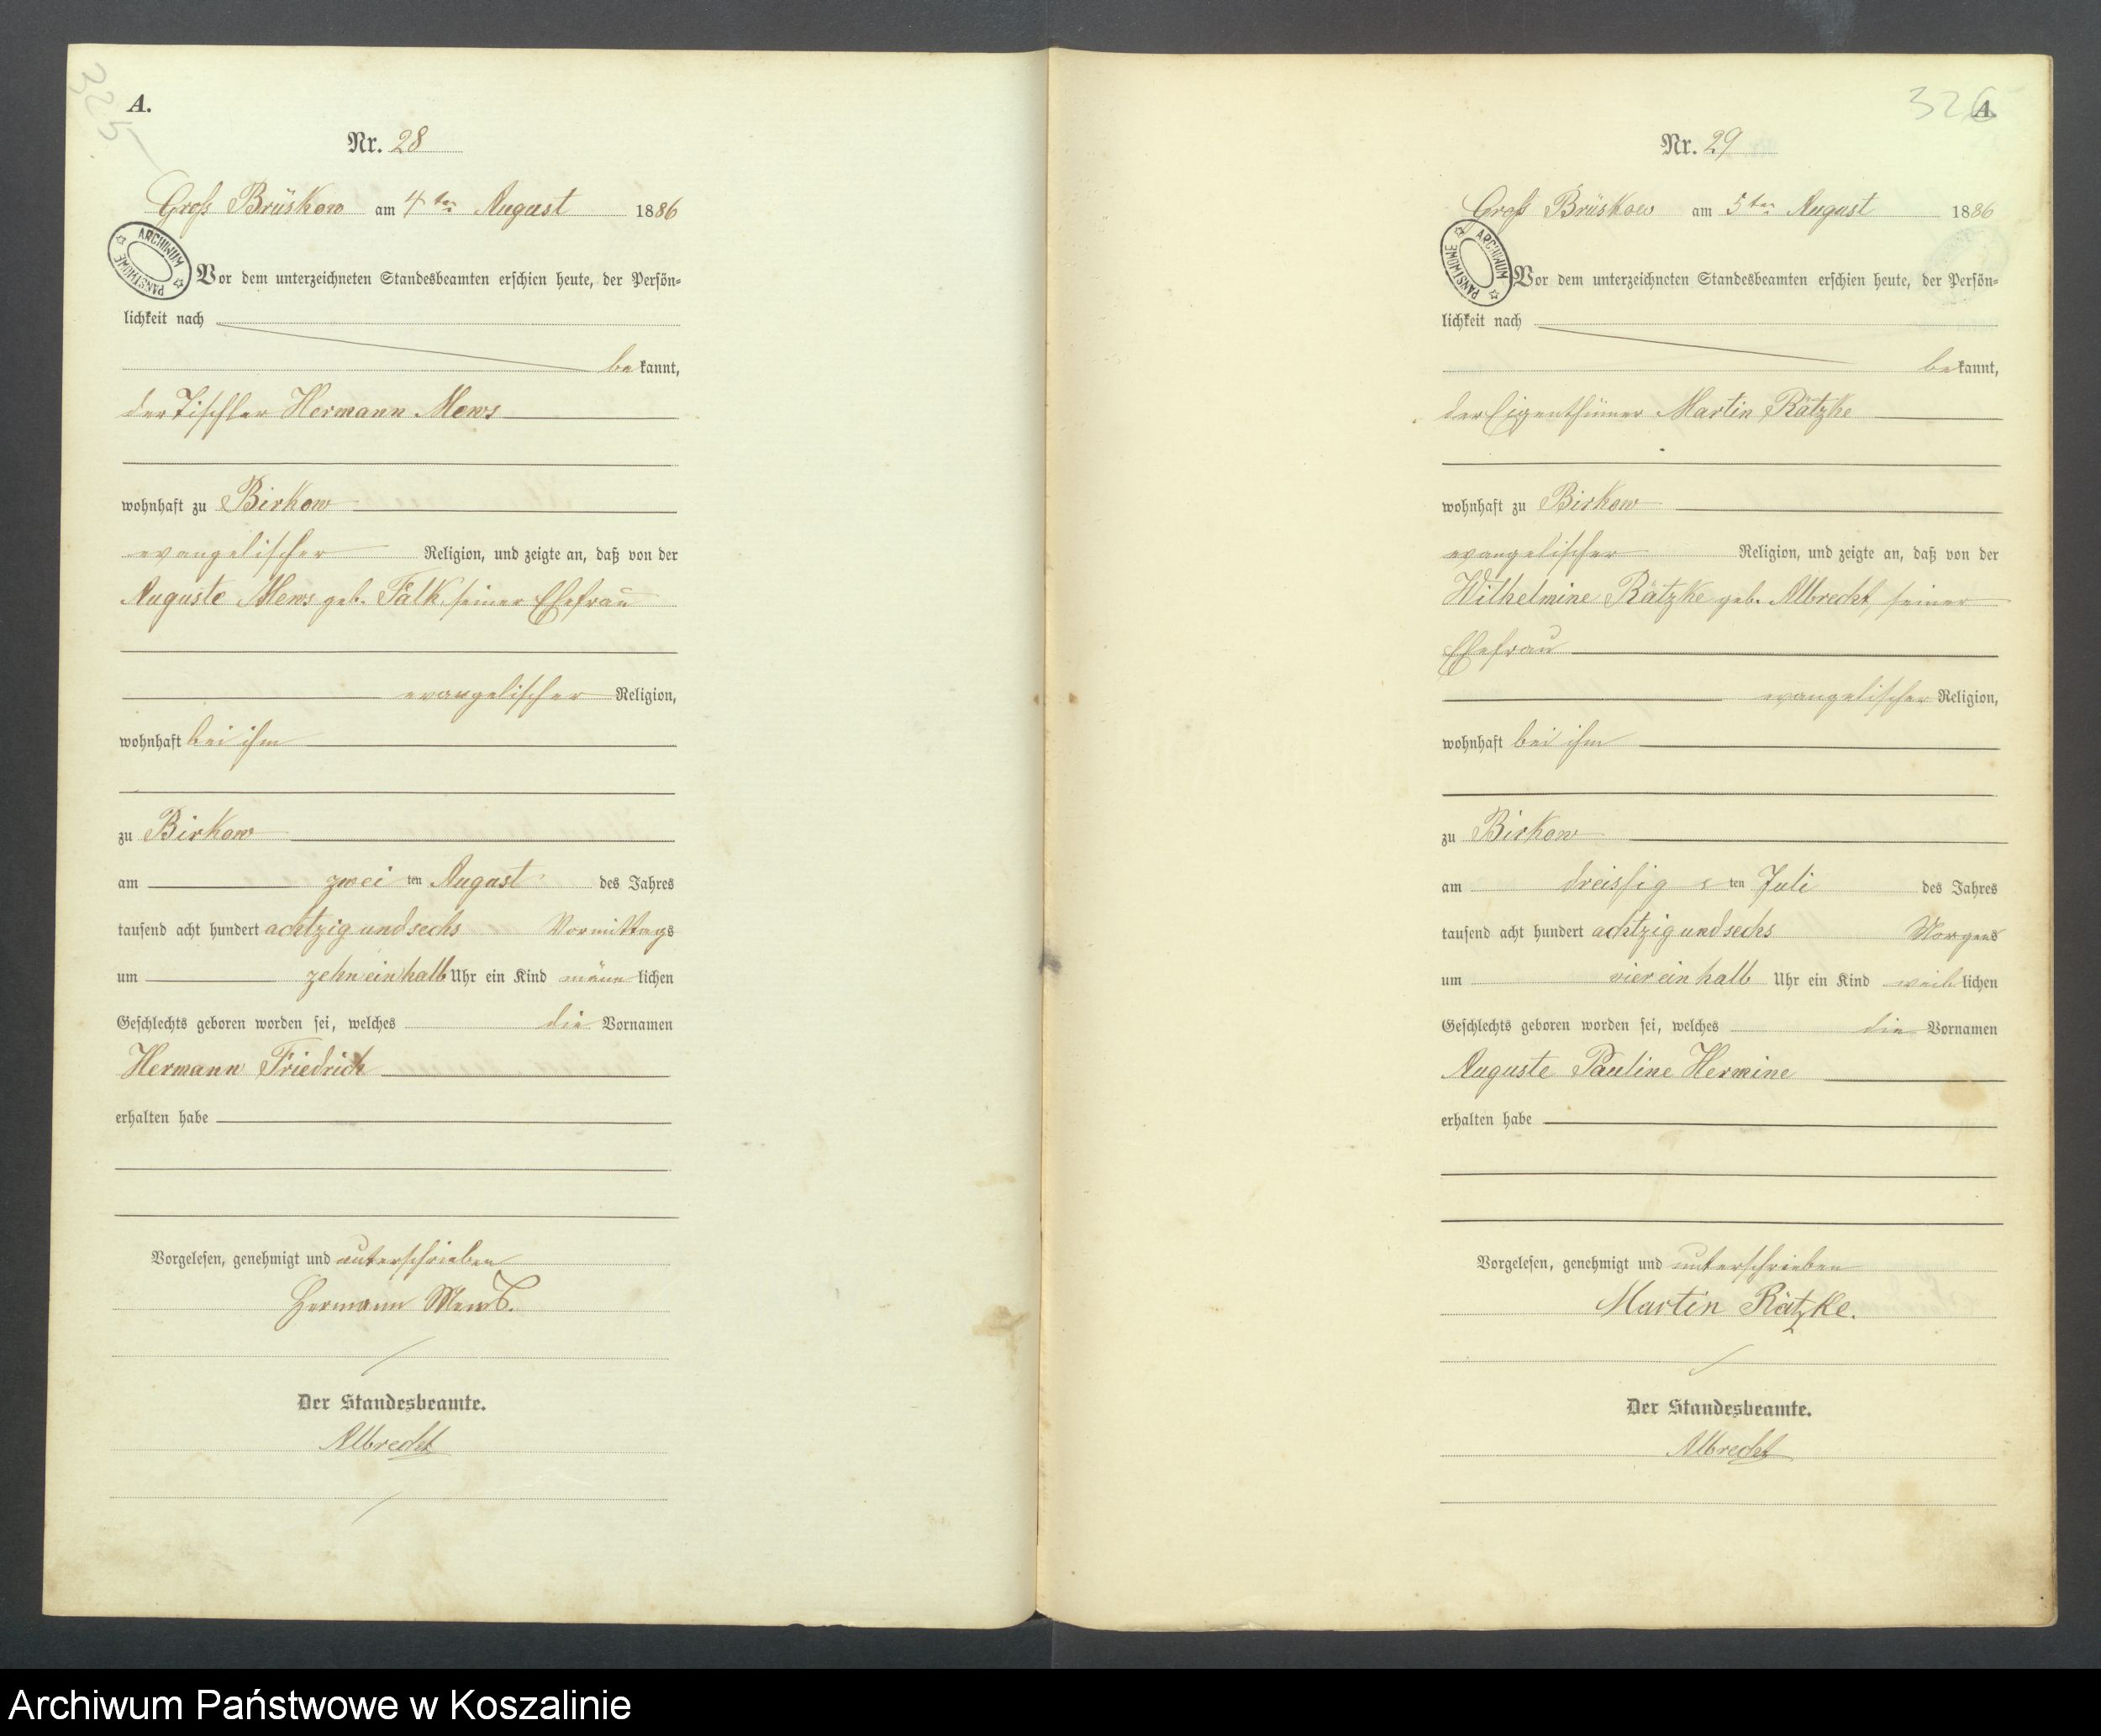 325
A.
Nr. 28
Groß Brüskow am 4ten August 1886
ARCHIWUM PAŃSTWOWE
Vor dem unterzeichneten Standesbeamten erschien heute, der Persön-
lichkeit nach
bekannt,
der Tischler Hermann Mews
wohnhaft zu Birkow
evangelischer Religion, und zeigte an, daß von der
Auguste Mews geb. Falk, seiner Ehefrau
evangelischer Religion,
wohnhaft bei ihm
zu Birkow
am zwei ten August des Jahres
tausend acht hundert achtzig und sechs Vormittags
um zehn ein halb Uhr ein Kind männlichen
Geschlechts geboren worden sei, welches die Vornamen
Hermann Friedrich
erhalten habe
Vorgelesen, genehmigt und unterschrieben
Hermann Mews.
Der Standesbeamte.
Albrecht
326
A.
Nr. 29
Groß Brüskow am 5ten August 1886
ARCHIWUM PAŃSTWOWE
Vor dem unterzeichneten Standesbeamten erschien heute, der Persön-
lichkeit nach
bekannt,
der Eigenthümer Martin Rätzke
wohnhaft zu Birkow
evangelischer Religion, und zeigte an, daß von der
Wilhelmine Rätzke geb. Albrecht, seiner
Ehefrau
evangelischer Religion,
wohnhaft bei ihm
zu Birkow
am dreissigs ten Juli des Jahres
tausend acht hundert achtzig und sechs Morgens
um vier ein halb Uhr ein Kind weiblichen
Geschlechts geboren worden sei, welches die Vornamen
Auguste Pauline Hermine
erhalten habe
Vorgelesen, genehmigt und unterschrieben
Martin Rätzke.
Der Standesbeamte.
Albrecht
Archiwum Państwowe w Koszalinie